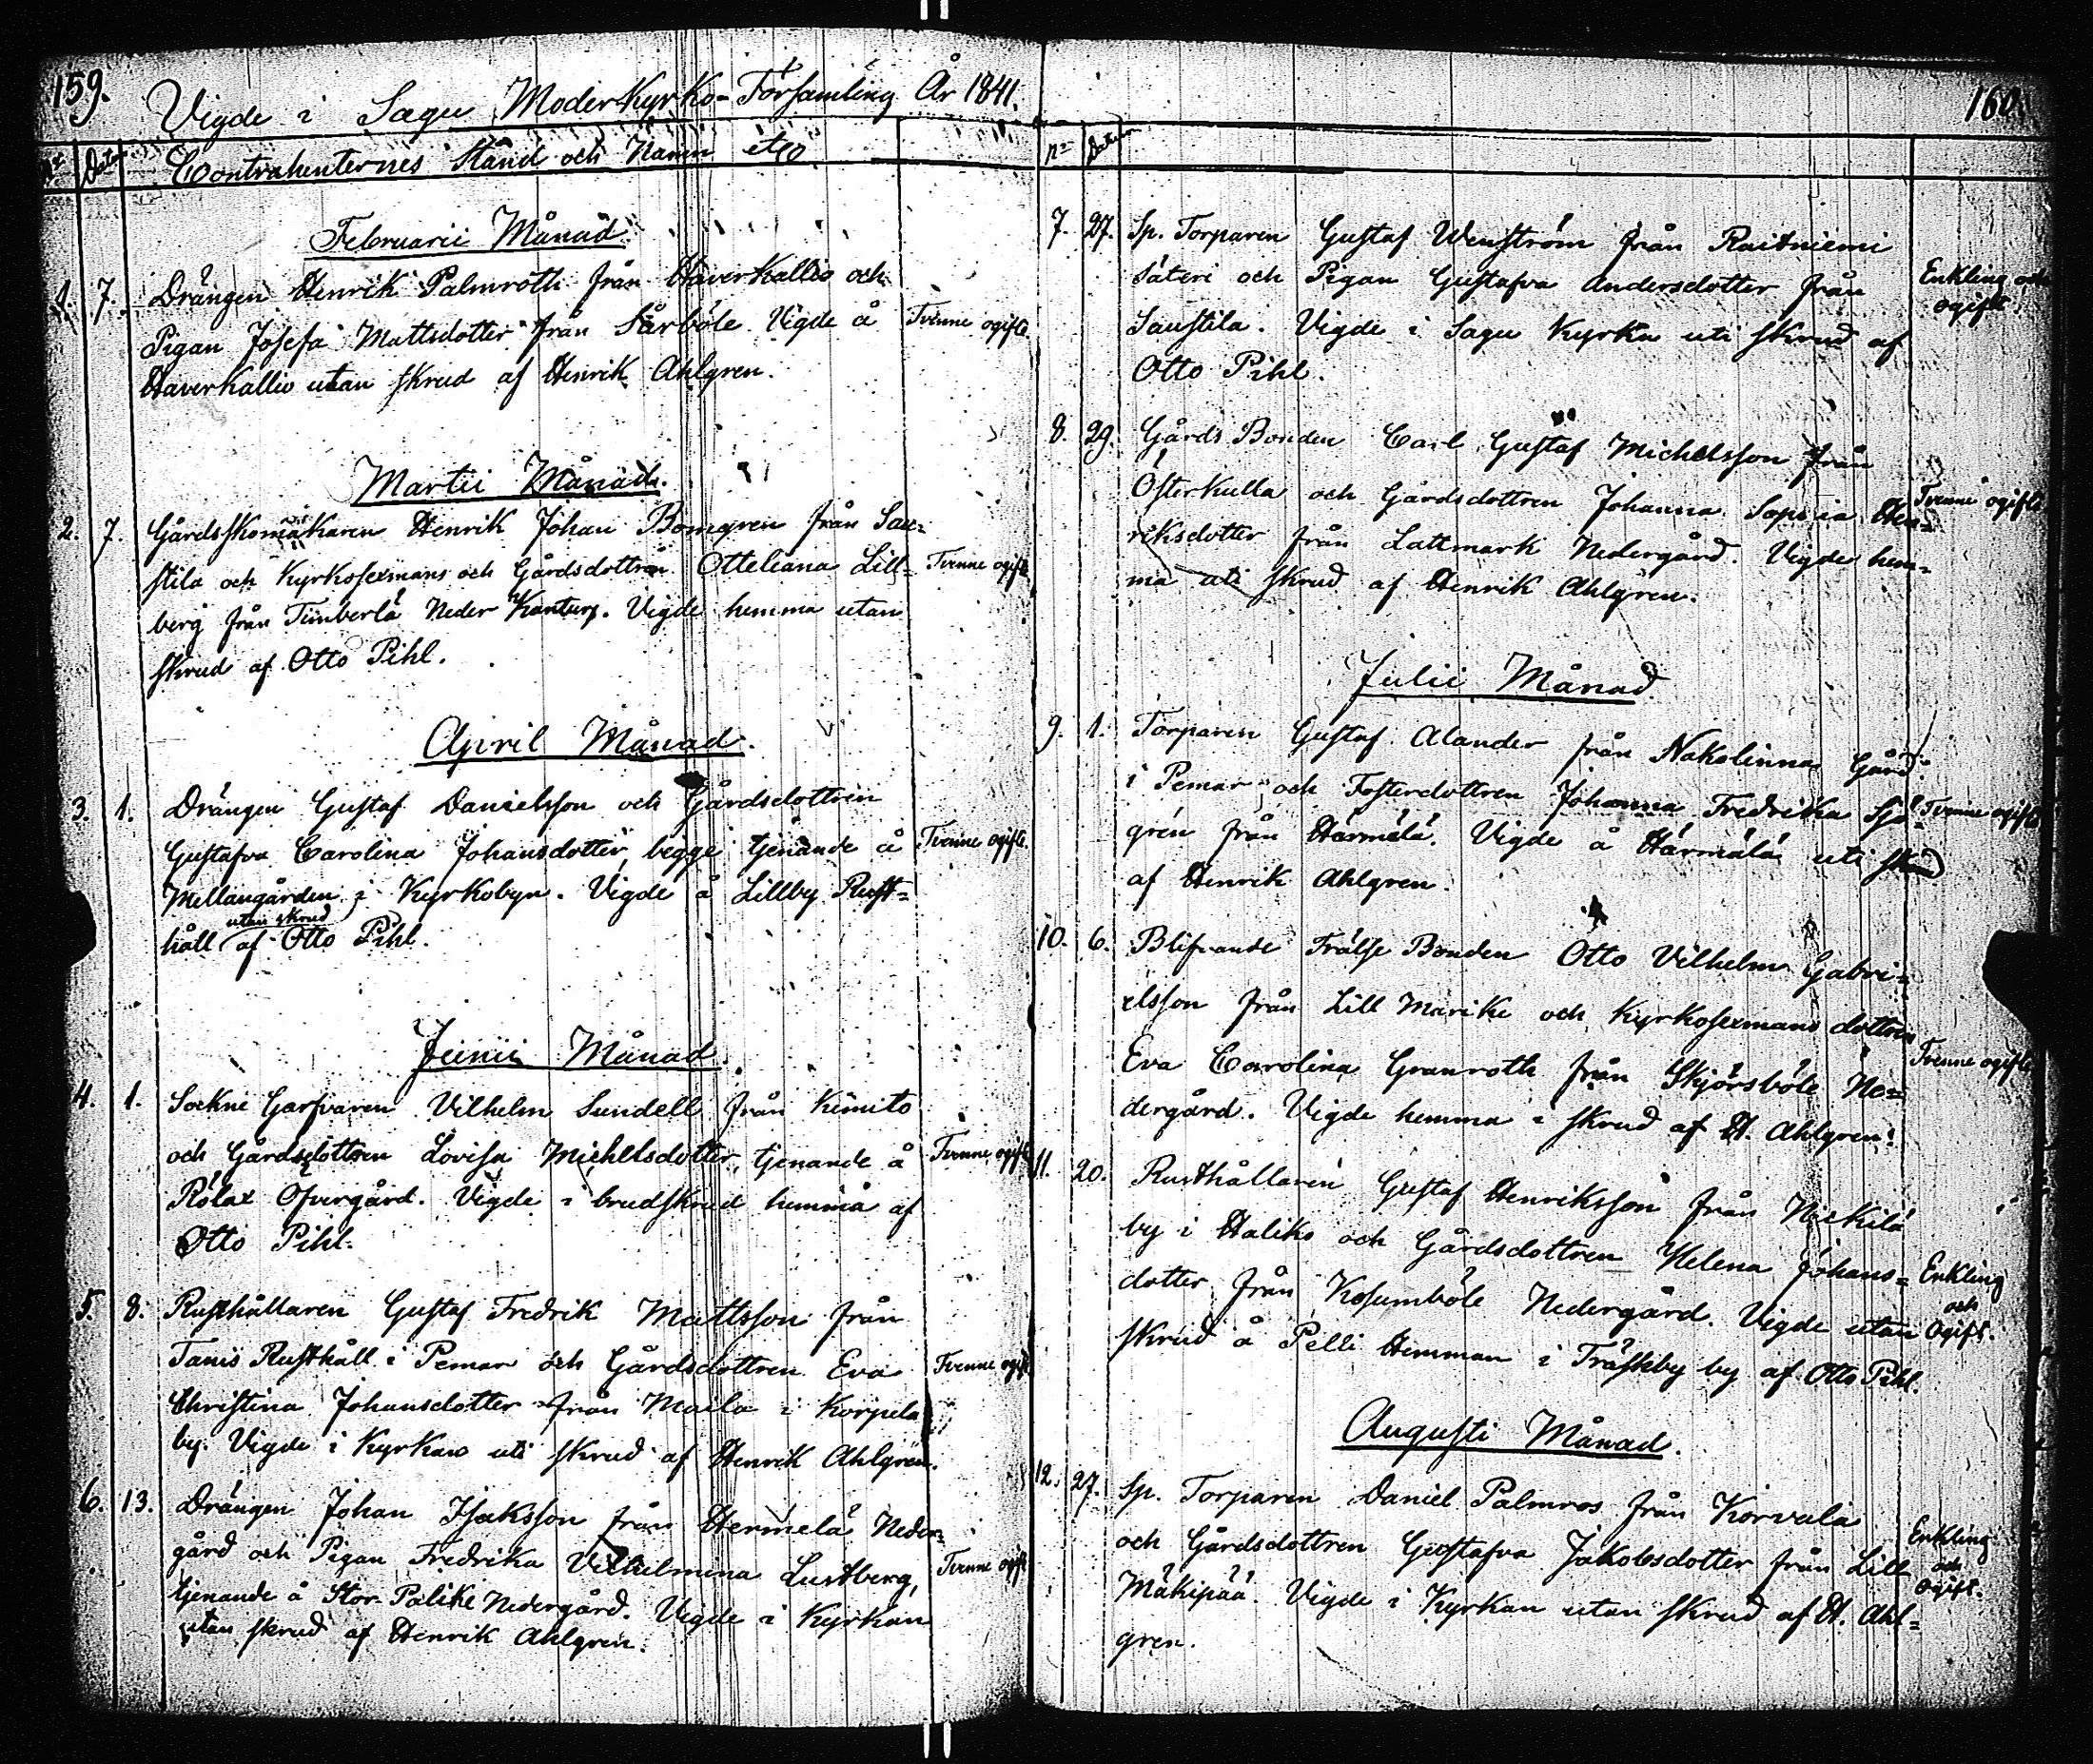 159.
Vigde i Sagu Moderkyrko-Församling År 1841.
No Dat. Contrahenternes Stånd och Namn etc.
Februarii Månad.
1. 7. Drängen Henrik Palmroth från Haverkallio och
Pigan Josefa Mattsdotter från Sarböle. Vigde å Tvenne ogifte
Haverkallio utan skrud af Henrik Ahlgren.
Martii Månad.
2. 7. Gårdsskomakaren Henrik Johan Bomgren från Sau-
stila och Kyrkosexmans och Gårdsdottren Otteliana Lill- Tvenne ogifte
berg från Timberlä Neder. Vigde hemma utan
skrud af Otto Pihl.
April Månad.
3. 1. Drängen Gustaf Danielsson och Gårdsdottren
Gustafva Carolina Johansdotter, begge tjenande å Tvenne ogifte.
Mellangården i Kyrkobyn. Vigde å Lillby Rust-
håll utan skrud af Otto Pihl.
Junii Månad.
4. 1. Sockne Garfvaren Vilhelm Sundell från Kimito
och Gårdsdottren Lovisa Michelsdotter, tjenande å Tvenne ogifte
Rölax Ofvergård. Vigde i brudskrud hemma af
Otto Pihl.
5. 8. Rusthållaren Gustaf Fredrik Mattsson från
Tanis Rusthåll i Pemar och Gårdsdottren Eva Tvenne ogift
Christina Johansdotter från Maila i Korpela
by. Vigde i Kyrkan uti skrud af Henrik Ahlgren.
6. 13. Drängen Johan Isaksson från Hermelä Neder-
gård och Pigan Fredrika Vilhelmina Lustberg, Tvenne ogift
tjenande å Stor Palike Nedergård. Vigde i Kyrkan
utan skrud af Henrik Ahlgren.
160.
No Datum
7. 27. Sp. Torparen Gustaf Wenström från Raitniemi
Säteri och Pigan Gustafva Andersdotter från Enkling och
ogift.
Saustila. Vigde i Sagu Kyrka uti skrud af
Otto Pihl.
8. 29. Gårds Bonden Carl Gustaf Michelsson från
Österkulla och Gårdsdottren Johanna Sophia Hen- Tvenne ogifte
riksdotter från Lattmark Nedergård. Vigde hem-
ma uti skrud af Henrik Ahlgren.
Julii Månad.
9. 1. Torparen Gustaf Alander från Nakolinna Gård
i Pemar och Fosterdottren Johanna Fredrika Sjö- Tvenne ogifte
gren från Härmälä. Vigde å Härmälä uti skrud
af Henrik Ahlgren.
10. 6. Blifvande Frälse Bonden Otto Vilhelm Gabri-
elsson från Lill Marike och Kyrkosexmans dottren
Eva Carolina Granroth från Skjörsböle Ne- Tvenne ogifte
dergård. Vigde hemma i skrud af H. Ahlgren.
11. 20. Rusthållaren Gustaf Henriksson från
by i Haliko och Gårdsdottren Helena Johans- Enkling
dotter från Kosumböle Nedergård. Vigde utan och
ogift.
skrud å Pelli Hemman i Träskby by af Otto Pihl.
Augusti Månad.
12. 27. Sp. Torparen Daniel Palmros från Korvala
och Gårdsdottren Gustafva Jakobsdotter från Lill Enkling
och
Mäkipää. Vigde i Kyrkan utan skrud af H. Ahl- ogift.
gren.